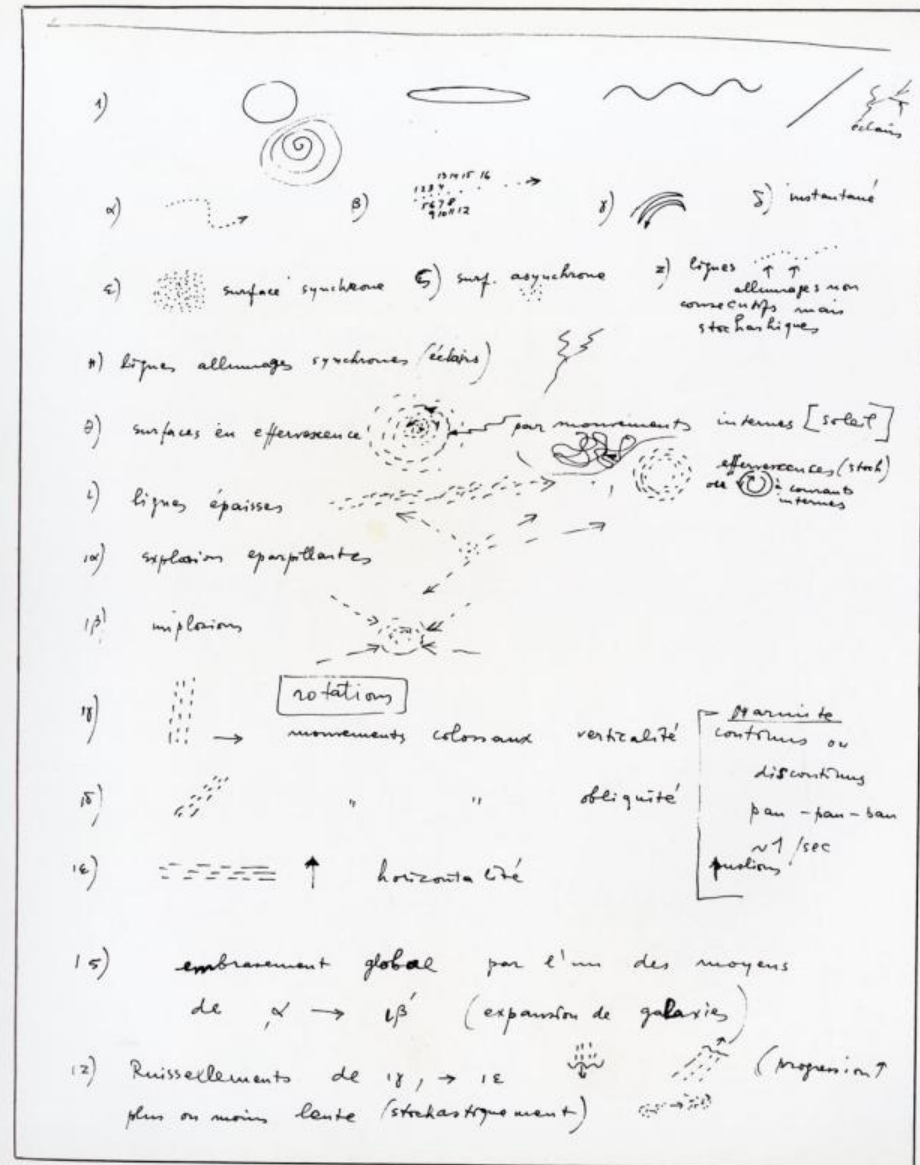 1)
éclairs
α) β) 13 14 15 16
1 2 3 4
5 6 7 8
9 10 11 12
γ) δ) instantané
ε) surface synchrone ϛ) surf. asynchrone z) lignes
allumages non
consécutifs mais
stochastiques
η) lignes allumages synchrones (éclairs)
θ) surfaces en effervescence par mouvements internes [soleil]
effervescences (stoch)
ou à courants
internes
ι) lignes épaisses
ια) explosion eparpillantes
ιβ) implosions
rotations
ιγ) → mouvements colossaux verticalité
ιδ) " " obliquité
ιε) ↑ horizontalité
continus ou
discontinus
pan - pan - ban
~1/sec
ιϛ) embrasement global par l'un des moyens
de α → ιβ' (expansion de galaxies)
ιz) Ruissellements de ιγ, → ιε (progression ↑
plus ou moins lente (stochastiquement)